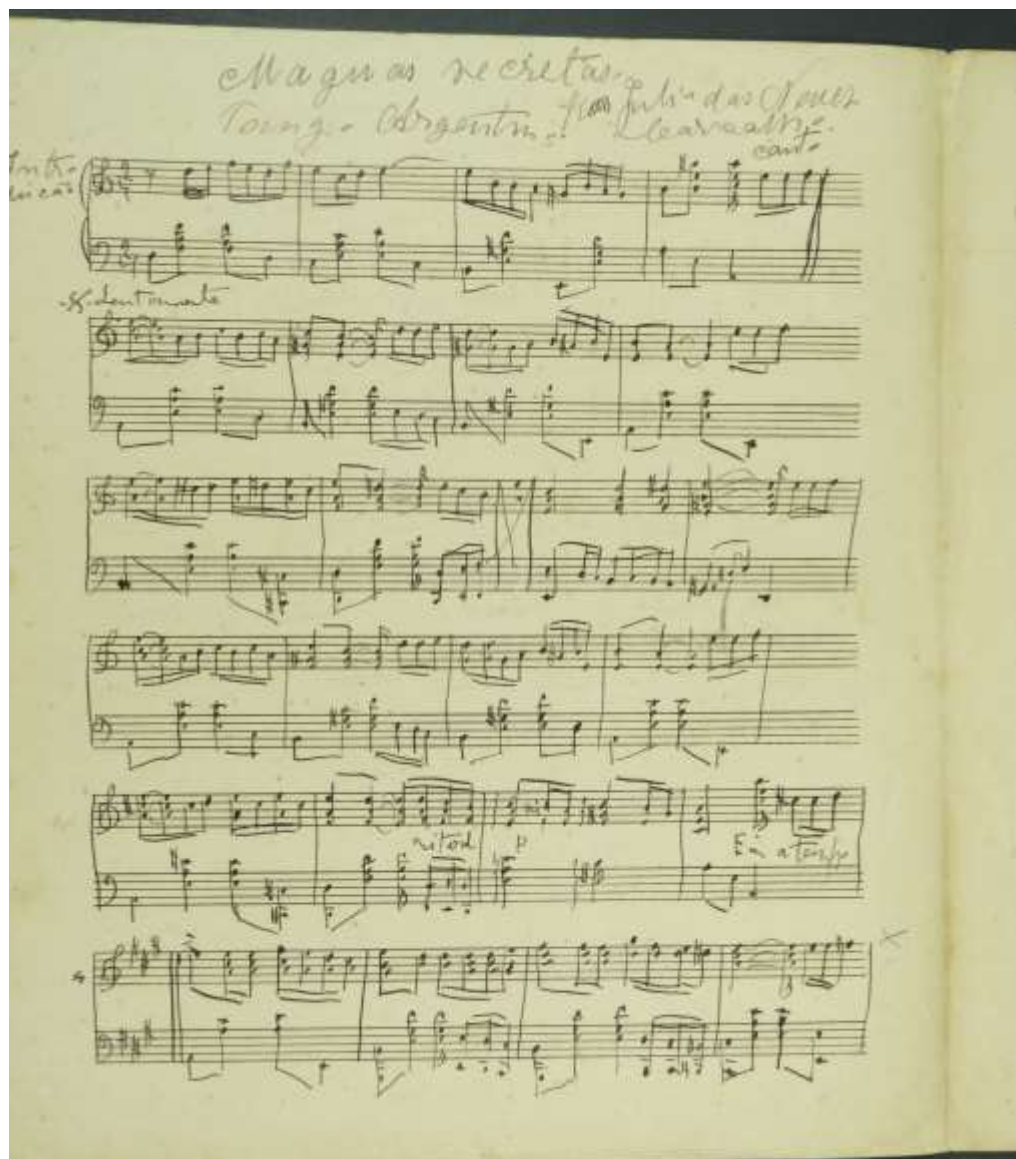 Maguas secretas.
Tango Argentino. Julio das Neves
Carvalho.
canto
Intro
ducão
Lentamente
ritard p
a tempo